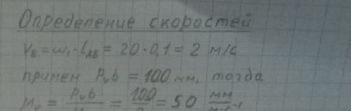 Определение скоростей
V_B = ω₁ · l_AB = 20 · 0,1 = 2 м/с
примем P_v b = 100 мм, тогда
M_v = P_v b = 100 = 50 мм